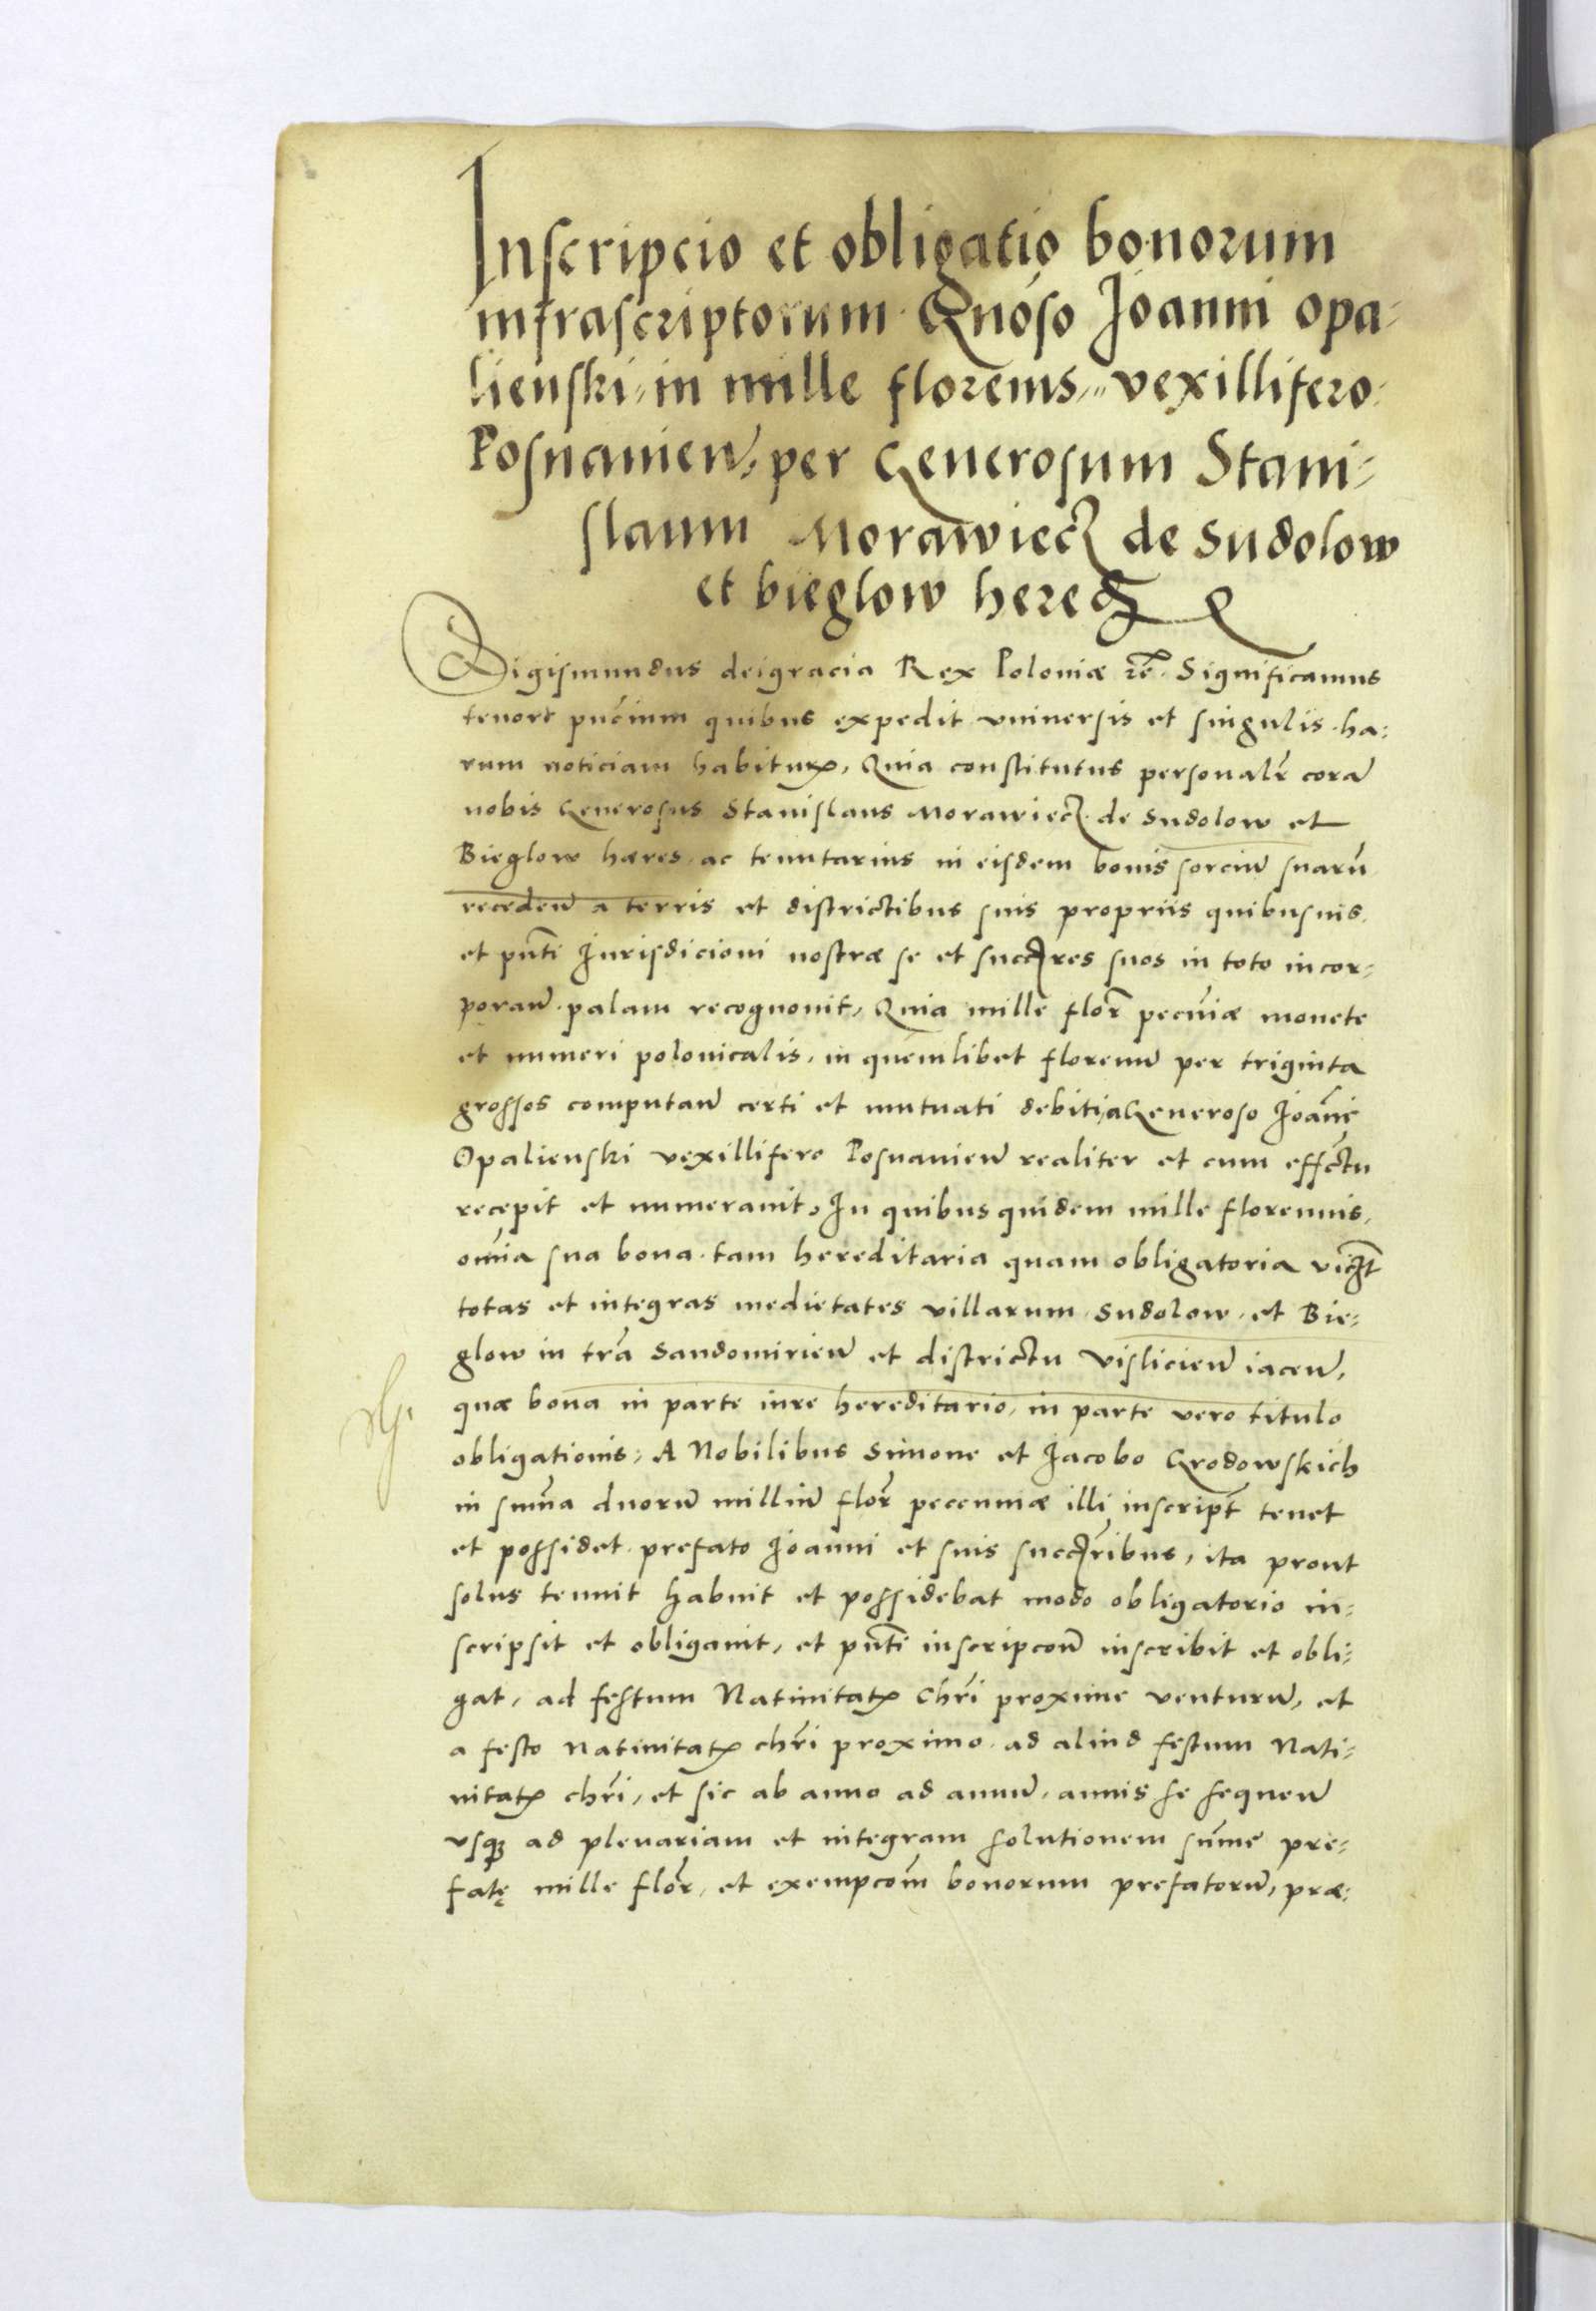 Inscripcio et obligatio bonorum
infrascriptorum Gnóso Joanni opa-
lienski, in mille florenis, vexillifero
Posnanien̄, per Generosum Stani-
slaum Morawiecz de Sudolow
et bieglow hered
Sigismundus dei gracia Rex Poloniæ zc̄. Significamus
tenore pn̄cium quibus expedit vniuersis et singulis ha:
rum noticiam habituꝝ, Quia constitutus personalr̄ corā
nobis Generosus Stanislaus Morawiecz de Sudolow et
Bieglow hæres, ac tenutarius in eisdem bonis sorciū suarū
receden̄ a terris et districtibus suis propriis quibusuis,
et pn̄ti Jurisdicioni nostræ se et succ̄res suos in toto incor-
poran̄ palam recognouit, Quia mille flor̄ pecun̄iæ monete
et numeri polonicalis, in quemlibet florenū per triginta
grossos computan̄ certi et mutuati debiti, a Generoso Joan̄e
Opalienski vexillifero Posnanien̄ realiter et cum effctu
recepit et numerauit, In quibus quidem mille florenis,
omīa sua bona tam hereditaria quam obligatoria viczt̄
totas et integras medietates villarum Sudolow, et Bie-
glow in trā Sandomirien̄ et districtu Vislicien̄ iacen̄,
quæ bona in parte iure hereditario, in parte vero titulo
obligationis, A Nobilibus Simone et Jacobo Grodowskich
in sum̄a duorū milliū flor̄ peccuniæ illi inscript̄ tenet
et possidet prefato Joanni et suis succ̄ribus, ita prout
solus tenuit habuit et possidebat modo obligatorio in-
scripsit et obligauit, et pn̄ti inscripcoē inscribit et obli-
gat, ad festum Natiuitatꝭ Chri proxime venturū, et
a festo natiuitatꝭ chri proximo ad aliud festum Nati-
uitatꝭ chri, et sic ab anno ad annū, annis se sequen̄
vsqꝫ ad plenariam et integram solutionem sum̄e pre-
fatę mille flor̄, et exempcom̄ bonorum prefatorū, præ: